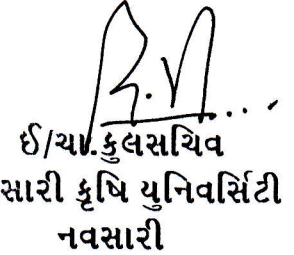 ઈ/ચા.કુલસચિવ
સારી કૃષિ યુનિવર્સિટી
નવસારી